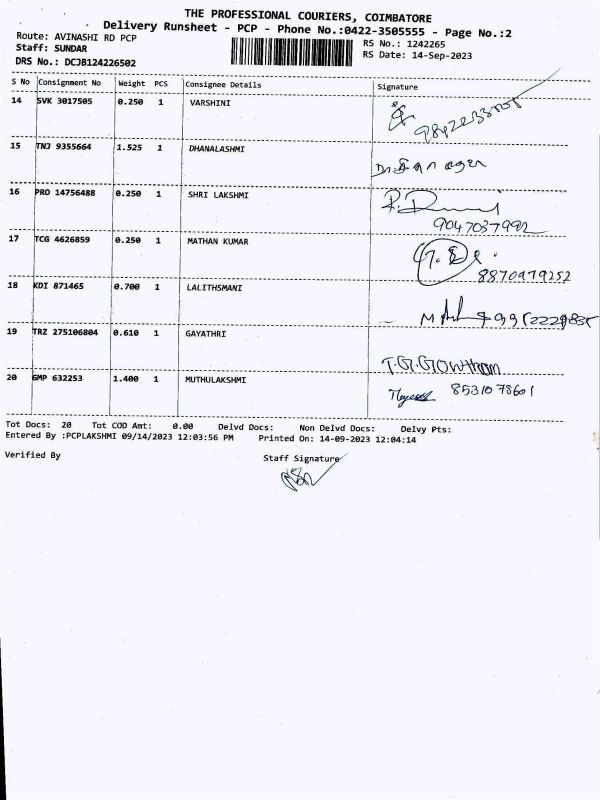 THE PROFESSIONAL COURIERS, COIMBATORE
Delivery Runsheet - PCP - Phone No.:0422-3505555 - Page No.:2
Route: AVINASHI RD PCP
RS No.: 1242265
Staff: SUNDAR
RS Date: 14-Sep-2023
DRS No.: DCJB124226502
S No Consignment No Weight PCS Consignee Details Signature
14 SVK 3017505 0.250 1 VARSHINI
15 TNJ 9355664 1.525 1 DHANALASHMI
16 PRO 14756488 0.250 1 SHRI LAKSHMI
9047057992
17 TCG 4626859 0.250 1 MATHAN KUMAR
8870979252
18 KDI 871465 0.700 1 LALITHSMANI
19 TRZ 275106804 0.610 1 GAYATHRI
T.G.Gowtham
20 GMP 632253 1.400 1 MUTHULAKSHMI
8531078601
Tot Docs: 20 Tot COD Amt: 0.00 Delvd Docs: Non Delvd Docs: Delvy Pts:
Entered By :PCPLAKSHMI 09/14/2023 12:03:56 PM Printed On: 14-09-2023 12:04:14
Verified By Staff Signature